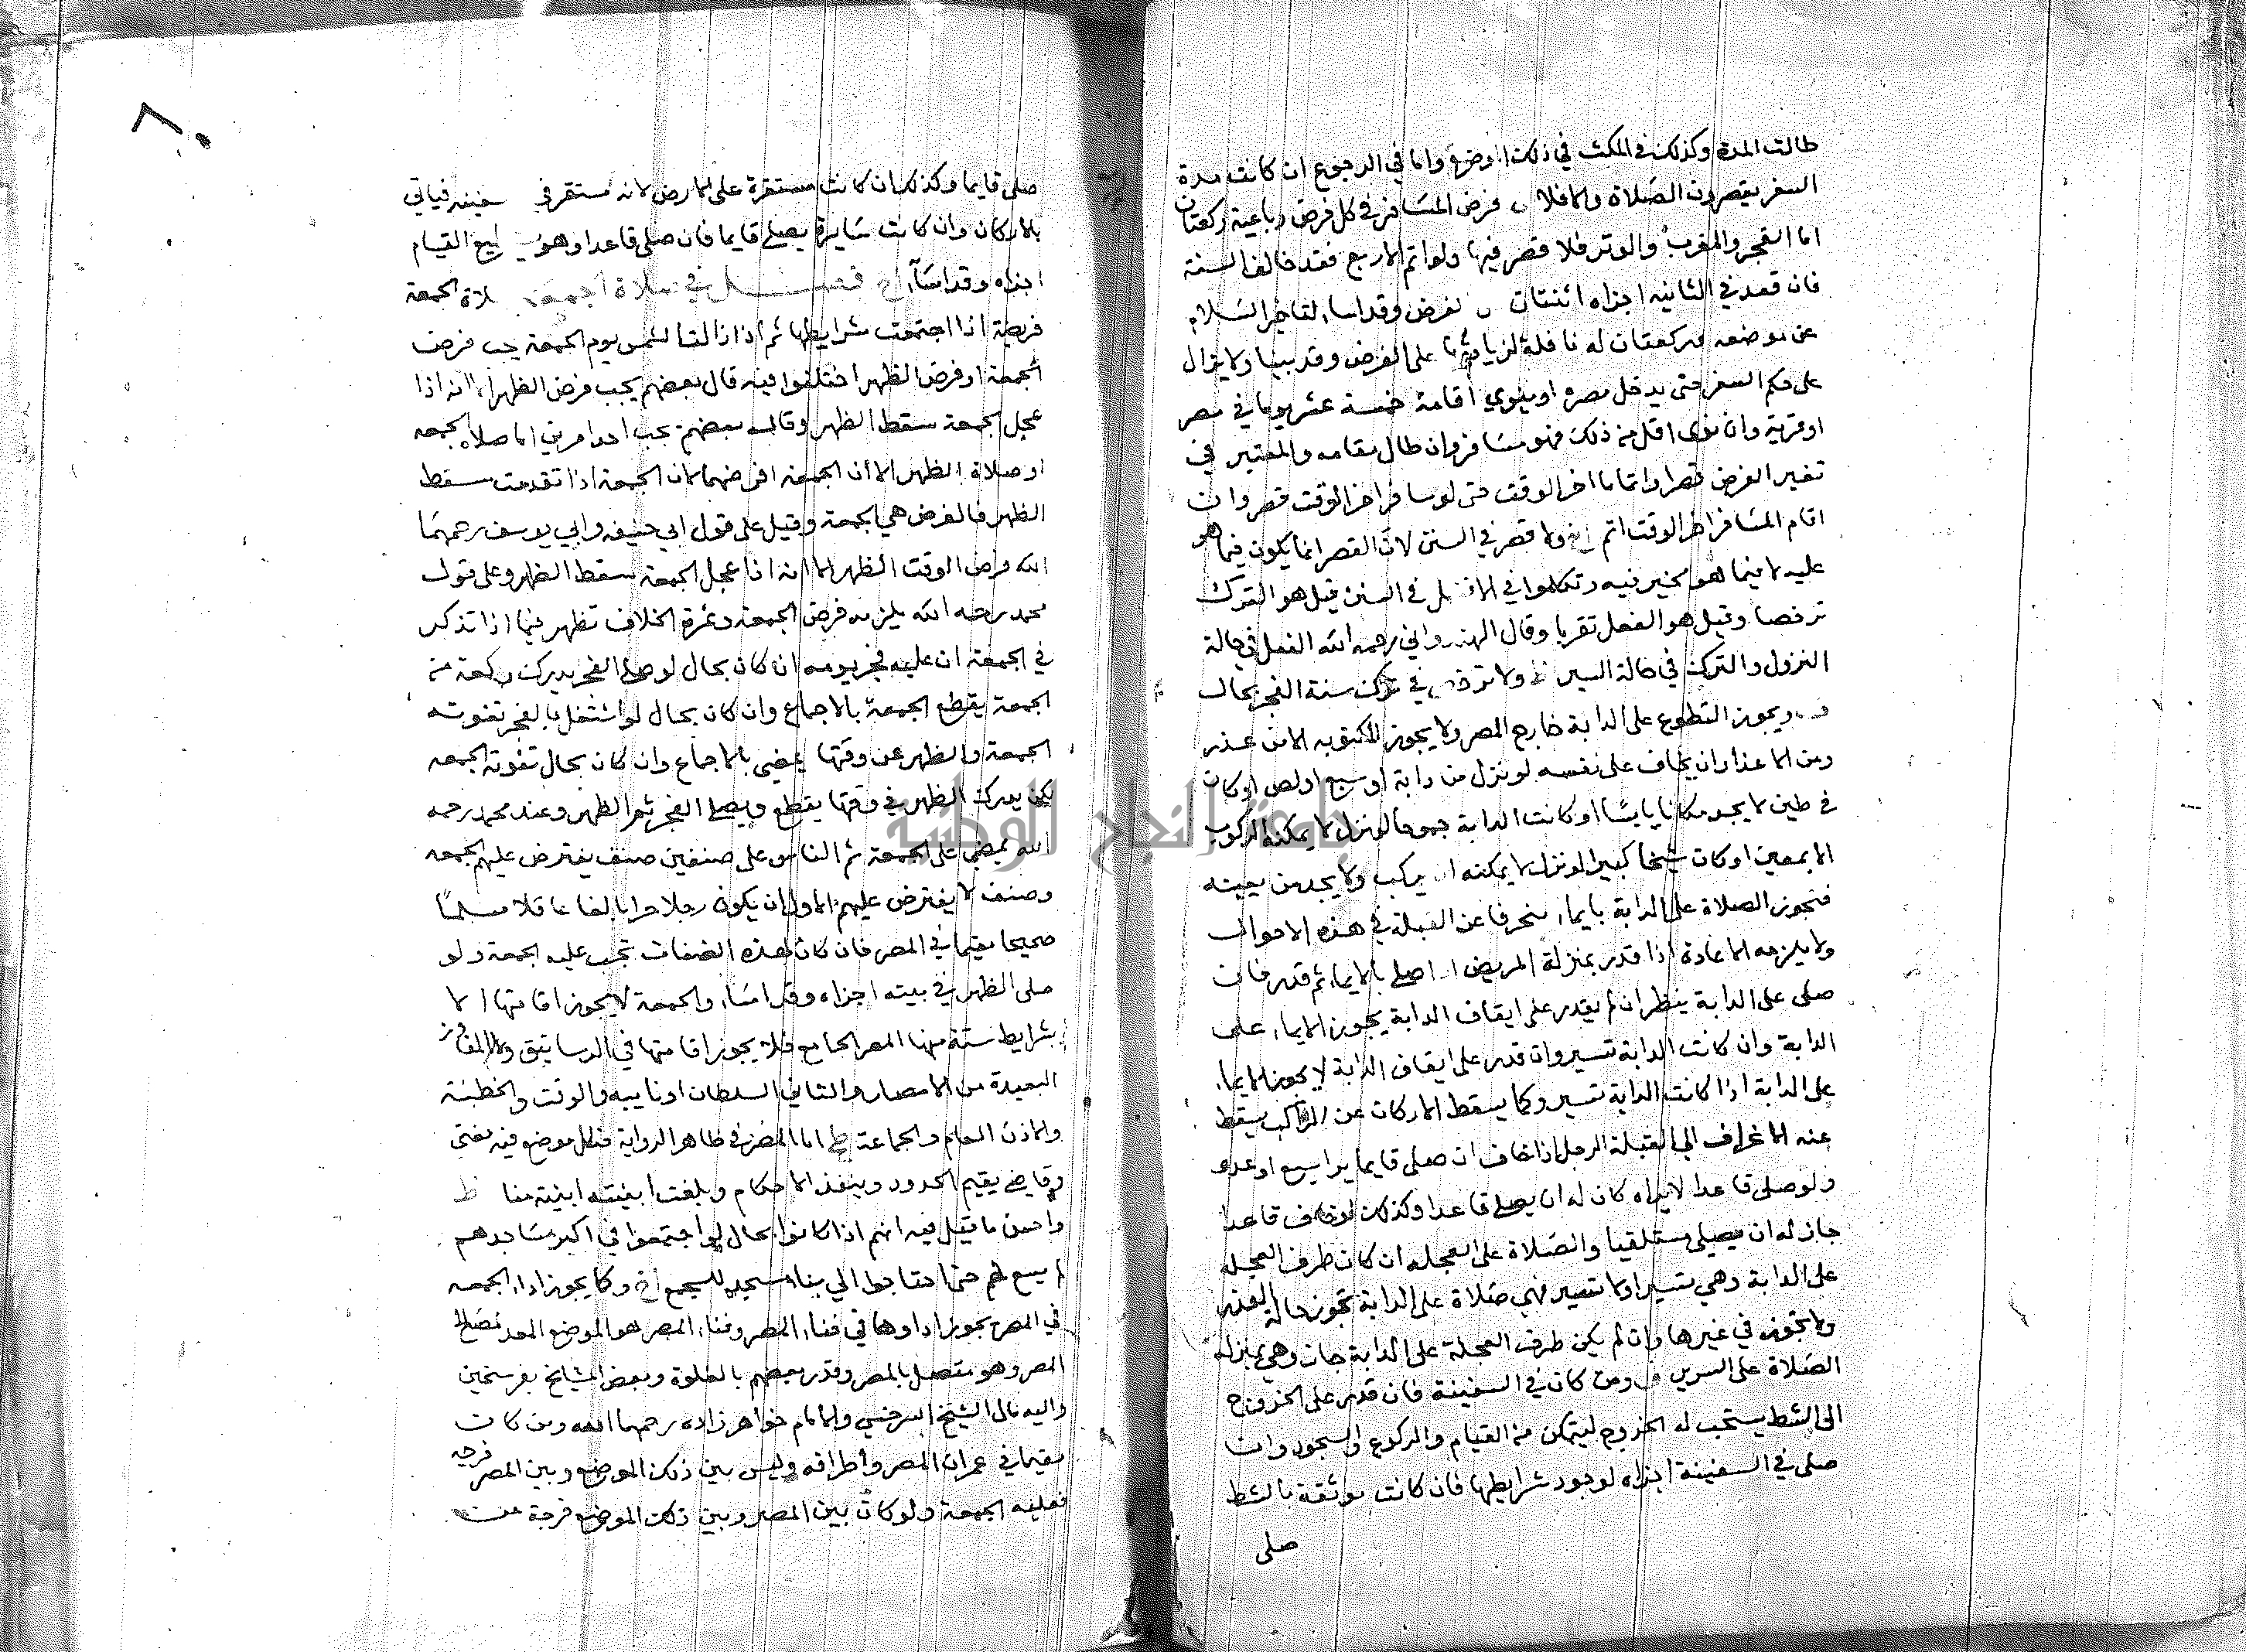 طالت المدة وكذلك في المكث في ذلك الموضع واما في الرجوع ان كانت مدة
السفر يقصرون الصلاة والا فلا فرض المسافر في كل فرض رباعية ركعتان
اما الفجر والمغرب والوتر فلا قصر فيها ولو اتم الاربع فقد خالف السنة
فان قعد في الثانية اجزاه اثنتان لفرض وقد اسا لتاخير السلام
عن موضعه وركعتان له نافلة لزيادتها على الفرض وقد بينا ولا يزال
على حكم السفر حتى يدخل مصره او ينوي اقامة خمسة عشر يوما في مصر
او قرية وان نوى اقل من ذلك فهو مسافر وان طال مقامه والمعتبر في
تغير الفرض قصرا واتماما اخر الوقت حتى لو سافر اخر الوقت قصر وان
اقام المسافر اخر الوقت اتم ولا قصر في السنن لان القصر انما يكون فيما هو
عليه لا فيما هو مخير فيه وتكلموا في الافضل في السنن قيل هو الترك
ترخصا وقيل هو الفعل تقربا وقال الهندواني رحمه الله الفعل في حالة
النزول والترك في حالة السير ولا ترخص في ترك سنة الفجر بحال
ويجوز التطوع على الدابة خارج المصر ولا يجوز المكتوبه الا من عذر
ومن الاعذار ان يخاف على نفسه لو نزل من دابة او سبع او لص او كان
في طين لا يجد مكانا يابسا او كانت الدابة جموحا لو نزل لا يمكنه الركوب
الا بمعين او كان شيخا كبيرا لو نزل لا يمكنه ان يركب ولا يجد من يعينه
فتجوز الصلاة على الدابة بايما منحرفا عن القبلة في هذه الاحوال
ولا يلزمه الاعادة اذا قدر بمنزلة المريض اذا صلى بالايما ثم قدر فان
صلى على الدابة ينظر ان لم يقدر على ايقاف الدابة يجوز الايما على
الدابة وان كانت الدابة تسير وان قدر على ايقاف الدابة لا يجوز الايما
على الدابة اذا كانت الدابة تسير وكما يسقط الاركان عن الراكب يسقط
عنه الانحراف الى القبلة الرجل اذا خاف ان صلى قايما يراه سبع او عدو
ولو صلى قاعدا لا يراه كان له ان يصلي قاعدا وكذلك لو خاف قاعدا
جاز له ان يصلي مستلقيا والصلاة على العجلة ان كان طرف العجلة
على الدابة وهي تسير او لا تسير فهي صلاة على الدابة تجوز حالة العذر
ولا تجوز في غيرها وان لم يكن طرف العجلة على الدابة جاز وهي بمنزلة
الصلاة على السرير ومن كان في السفينة فان قدر على الخروج
الى الشط يستحب له الخروج ليتمكن من القيام والركوع والسجود وان
صلى في السفينة اجزاه لوجود شرايطها فان كانت موثقة بالشط
صلى
٨٠
صلى قايما وكذلك ان كانت مستقرة على الارض لانه مستقر في سفينه فياتي
بالاركان وان كانت سايرة يصلي قايما فان صلى قاعدا وهو القيام
اجزاه وقد اسا فصل في صلاة الجمعة صلاة الجمعة
فريضة اذا اجتمعت شرايطها ثم اذا زالت الشمس يوم الجمعة يجب فرض
الجمعة او فرض الظهر اختلفوا فيه قال بعضهم يجب فرض الظهر الا انه اذا
عجل الجمعة سقط الظهر وقال بعضهم يجب احد امرين اما صلاة الجمعه
او صلاة الظهر الا ان الجمعة افرضهما لان الجمعة اذا تقدمت سقط
الظهر فالفرض هي الجمعة وقيل على قول ابي حنيفه وابي يوسف رحمهما
الله فرض الوقت الظهر الا انه اذا عجل الجمعة سقط الظهر وعلى قول
محمد رحمه الله يلزمه فرض الجمعة وثمرة الخلاف تظهر فيما اذا تذكر
في الجمعة ان عليه فجر يومه ان كان بحال لو صلى الفجر يدرك ركعة من
الجمعة يقطع الجمعة بالاجماع وان كان بحال لو اشتغل بالفجر تفوته
الجمعة والظهر عن وقتها يمضي بالاجماع وان كان بحال تفوته الجمعه
لكن يدرك الظهر في وقتها يقطع ويصلي الفجر ثم الظهر وعند محمد رحمه
الله يمضي على الجمعة ثم الناس على صنفين صنف يفترض عليهم الجمعه
وصنف لا يفترض عليهم الاول ان يكون رجلا حرا بالغا عاقلا مسلما
صحيحا مقيما في المصر فان كان هذه الصفات تجب عليه الجمعة ولو
صلى الظهر في بيته اجزاه وقد اسا والجمعة لا يجوز اقامتها الا
بشرايط ستة منها المصر الجامع فلا يجوز اقامتها في الرساتيق والمفاوز
البعيدة من الامصار والثاني السلطان او نايبه والوقت والخطبة
والاذن العام والجماعة اما المصر في ظاهر الرواية فكل موضع فيه مفتي
وقاضي يقيم الحدود وينفذ الاحكام وبلغت ابنيته ابنية منا
واحسن ما قيل فيه انهم اذا كانوا بحال لو اجتمعوا في اكبر مساجدهم
لم يسع لهم حتى احتاجوا الى بناء مسجد للجمع وكما يجوز ادا الجمعه
في المصر يجوز اداوها في فنا المصر وفنا المصر هو الموضع المعد لمصالح
المصر وهو متصل بالمصر وقدر بعضهم بالغلوة وبعض المشايخ بفرسخين
واليه مال الشيخ السرخسي والامام خواهر زاده رحمهما الله ومن كان
مقيما في عمران المصر واطرافه وليس بين ذلك الموضع وبين المصر فرجه
فعليه الجمعة ولو كان بين المصر وبين ذلك الموضع فرجة من
جامعة النجاح الوطنية